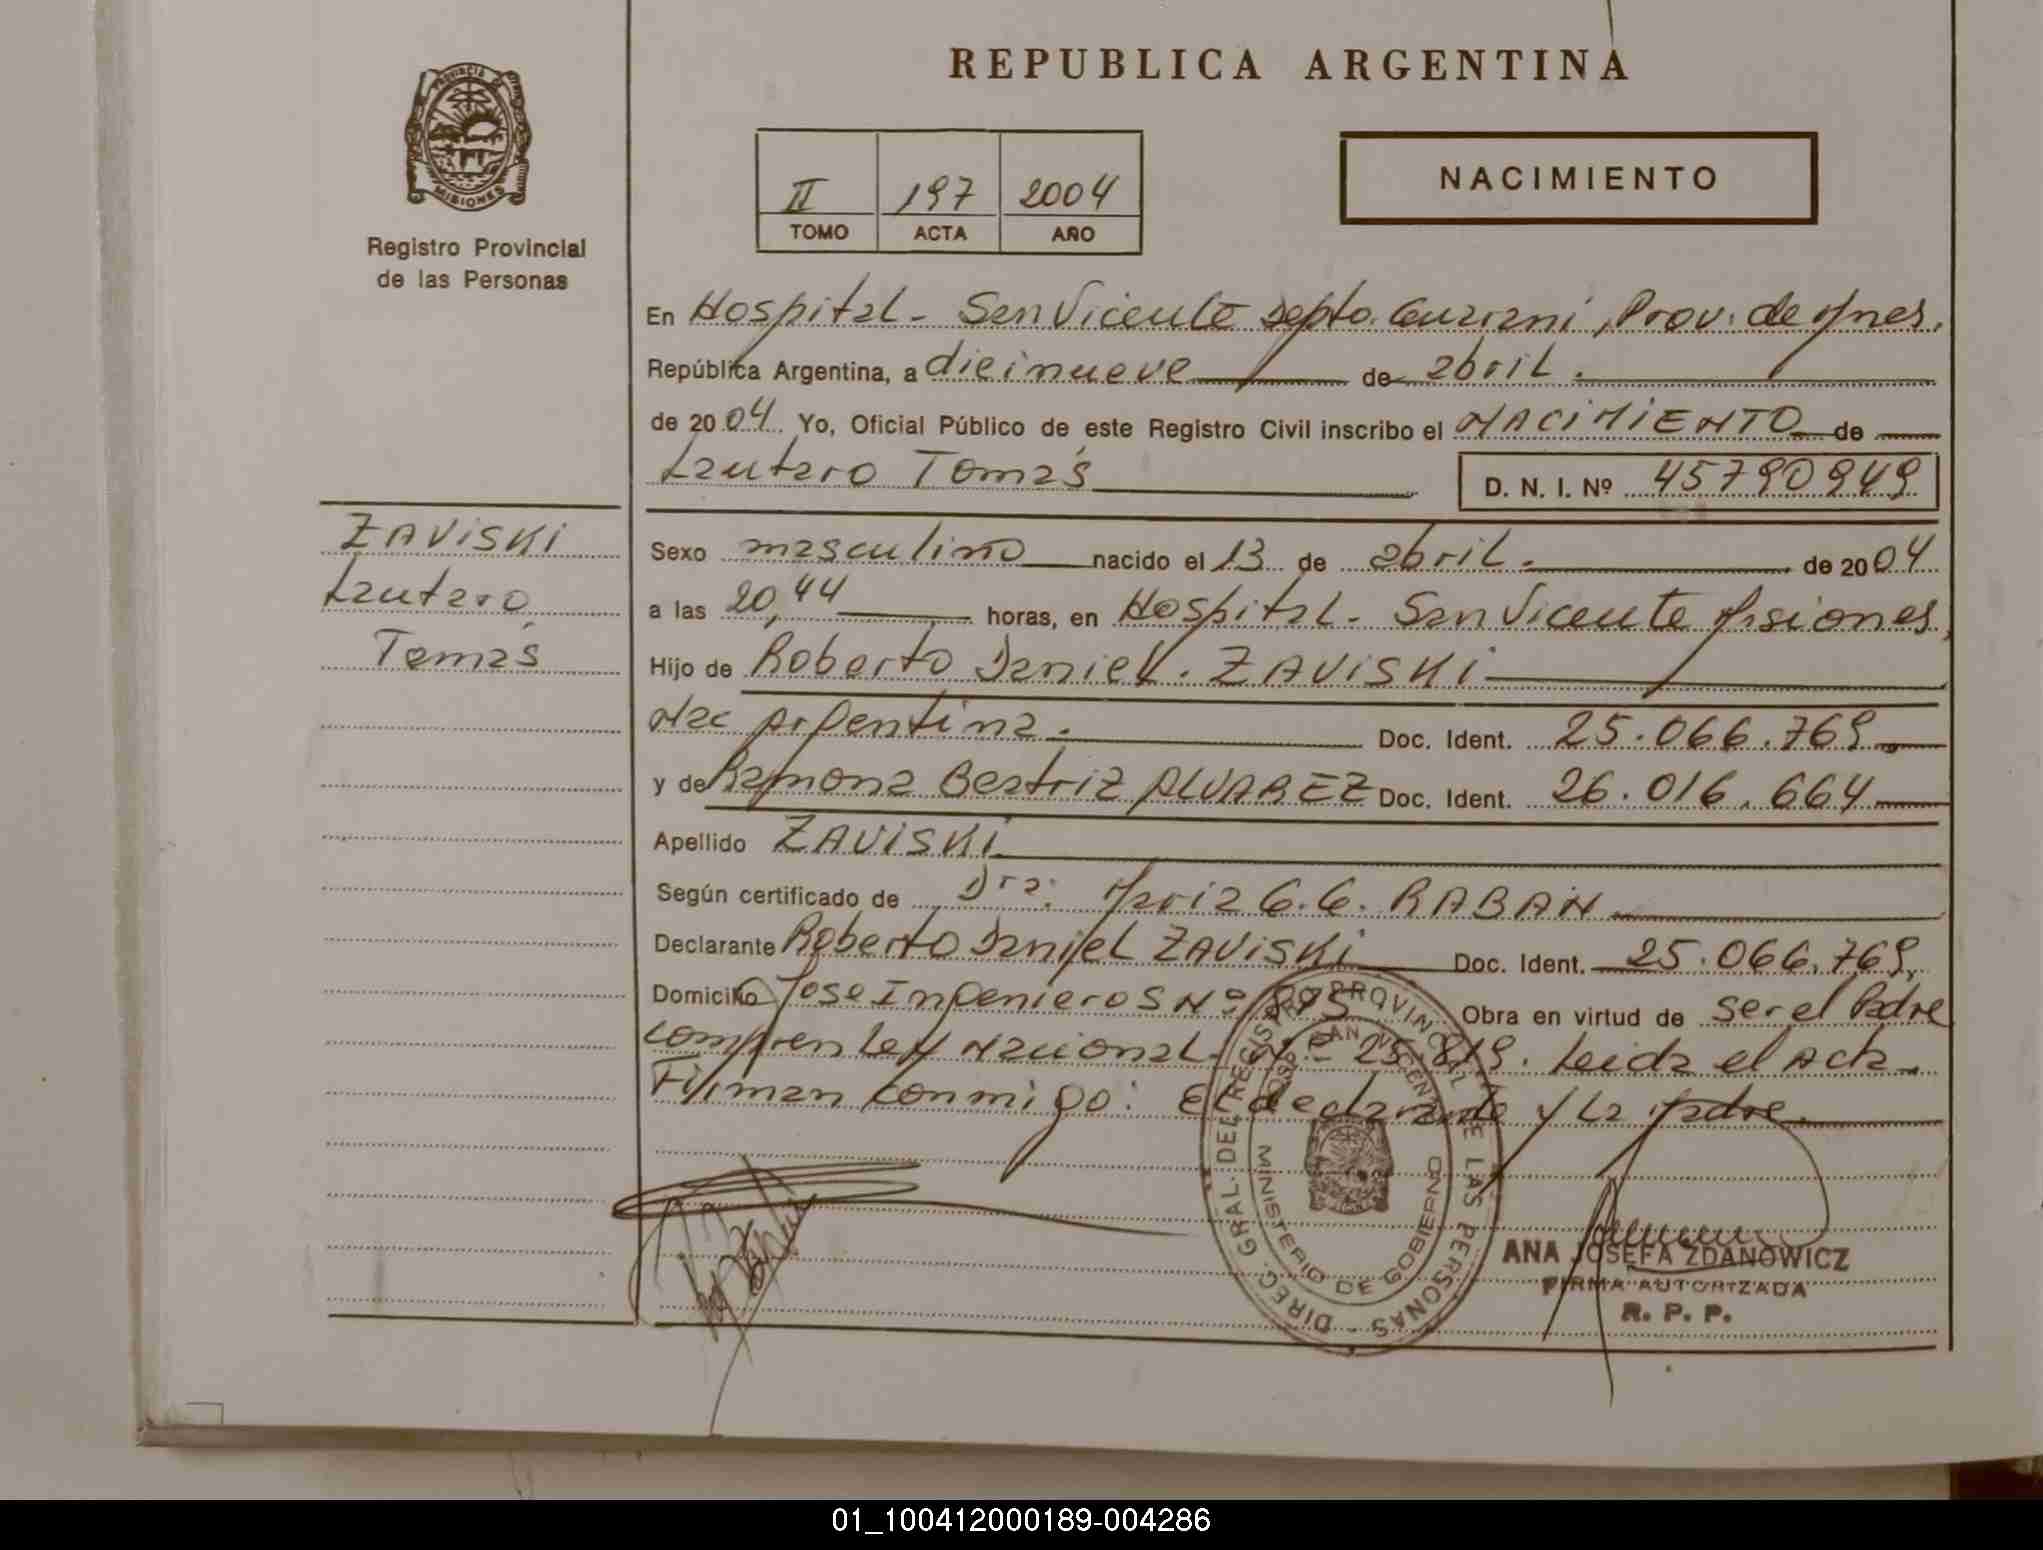 REPUBLICA ARGENTINA
PROVINCIA DE
MISIONES
Registro Provincial
de las Personas
II 197 2004
TOMO ACTA AÑO
NACIMIENTO
En Hospital - San Vicente Depto. Guaraní, Prov. de Mnes,
República Argentina, a dieinueve de abril.
de 2004 Yo, Oficial Público de este Registro Civil inscribo el NACIMIENTO de
Lautaro Tomás D. N. I. Nº 45790949
ZAVISKI
Lautaro
Tomás
Sexo masculino nacido el 13 de abril. de 2004
a las 20,44 horas, en Hospital - San Vicente Misiones,
Hijo de Roberto Daniel. ZAVISKI
Nac Argentina. Doc. Ident. 25.066.769
y de Ramona Beatriz ALVAREZ Doc. Ident. 26.016.664
Apellido ZAVISKI
Según certificado de Dra: Maria G.G. RABAN
Declarante Roberto Daniel ZAVISKI Doc. Ident. 25.066.769,
Domicilio Jose Ingenieros Nº 875 Obra en virtud de ser el Padre
Ley Nacional. Nº 25.819. Leida el Acta
Firman conmigo: El declarante y La Madre.
DIREC. GRAL. DEL REGISTRO PROVINCIAL DE LAS PERSONAS
HOSP. SAN VICENTE
MINISTERIO DE GOBIERNO
ANA JOSEFA ZDANOWICZ
FIRMA AUTORIZADA
R. P. P.
01_100412000189-004286